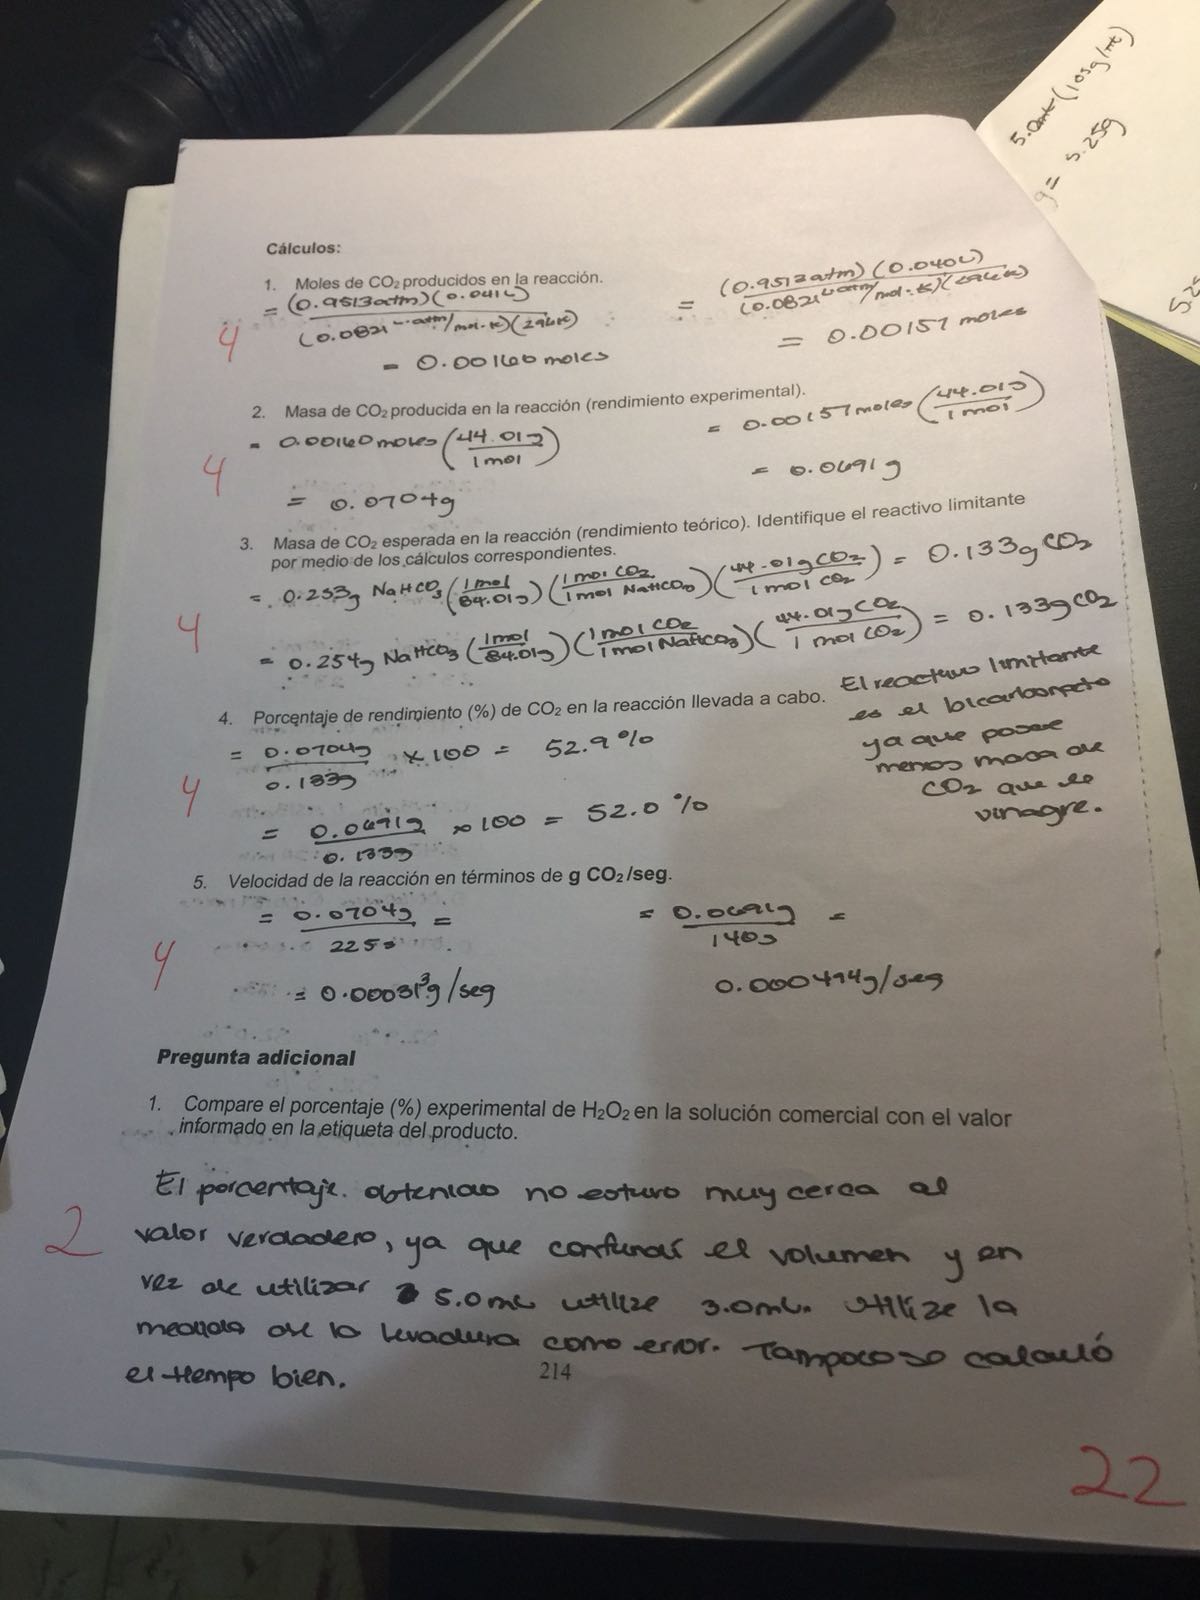 5.0mL(105g/mL)
g= 5.25g
5.25
Cálculos:
1. Moles de CO₂ producidos en la reacción.
= (0.9513atm)(0.041L) / (0.0821 L·atm/mol·K)(296K)
= 0.00160 moles
= (0.9513atm)(0.040L) / (0.0821 L·atm/mol·K)(296K)
= 0.00157 moles
4
2. Masa de CO₂ producida en la reacción (rendimiento experimental).
= 0.00160 moles (44.01g / 1mol)
= 0.0704g
= 0.00157 moles (44.01g / 1mol)
= 0.0691g
4
3. Masa de CO₂ esperada en la reacción (rendimiento teórico). Identifique el reactivo limitante
por medio de los cálculos correspondientes.
= 0.253g NaHCO₃ (1mol / 84.01g) (1mol CO₂ / 1mol NaHCO₃) (44.01g CO₂ / 1mol CO₂) = 0.133g CO₂
= 0.254g NaHCO₃ (1mol / 84.01g) (1mol CO₂ / 1mol NaHCO₃) (44.01g CO₂ / 1mol CO₂) = 0.133g CO₂
4
El reactivo limitante
es el bicarbonato
ya que posee
menos masa de
CO₂ que el
vinagre.
4. Porcentaje de rendimiento (%) de CO₂ en la reacción llevada a cabo.
= 0.0704g / 0.133g × 100 = 52.9%
= 0.0691g / 0.133g × 100 = 52.0%
4
5. Velocidad de la reacción en términos de g CO₂/seg.
= 0.0704g / 225s =
= 0.000313g/seg
= 0.0691g / 140s =
0.000494g/seg
4
Pregunta adicional
1. Compare el porcentaje (%) experimental de H₂O₂ en la solución comercial con el valor
informado en la etiqueta del producto.
El porcentaje obtenido no estuvo muy cerca al
valor verdadero, ya que confundí el volumen y en
vez de utilizar 5.0mL utilize 3.0mL. Utilize la
medida de la levadura como error. Tampoco se calculó
el tiempo bien.
2
214
22